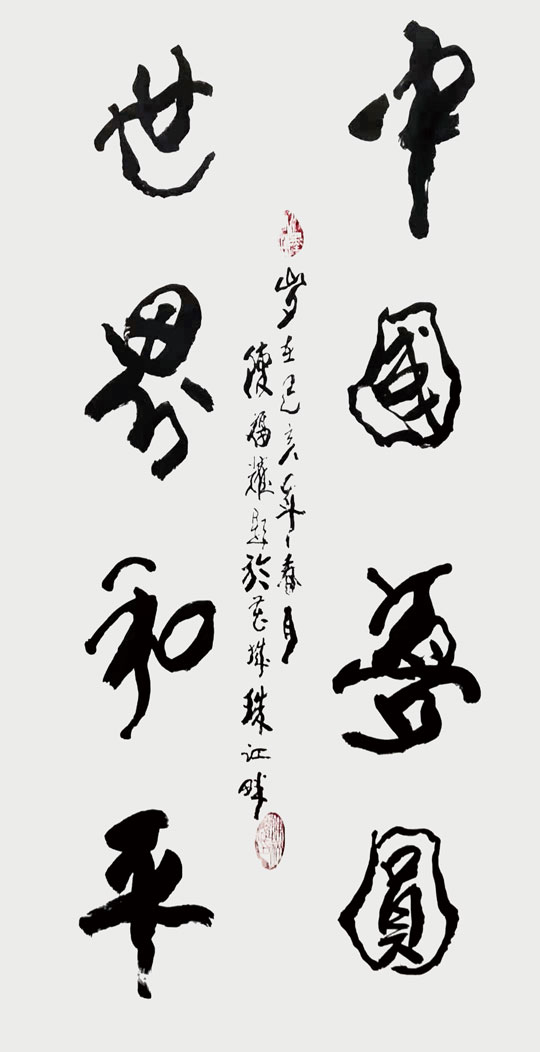 中國夢圓
世界和平
歲在己亥年春月
福耀題於花城珠江畔